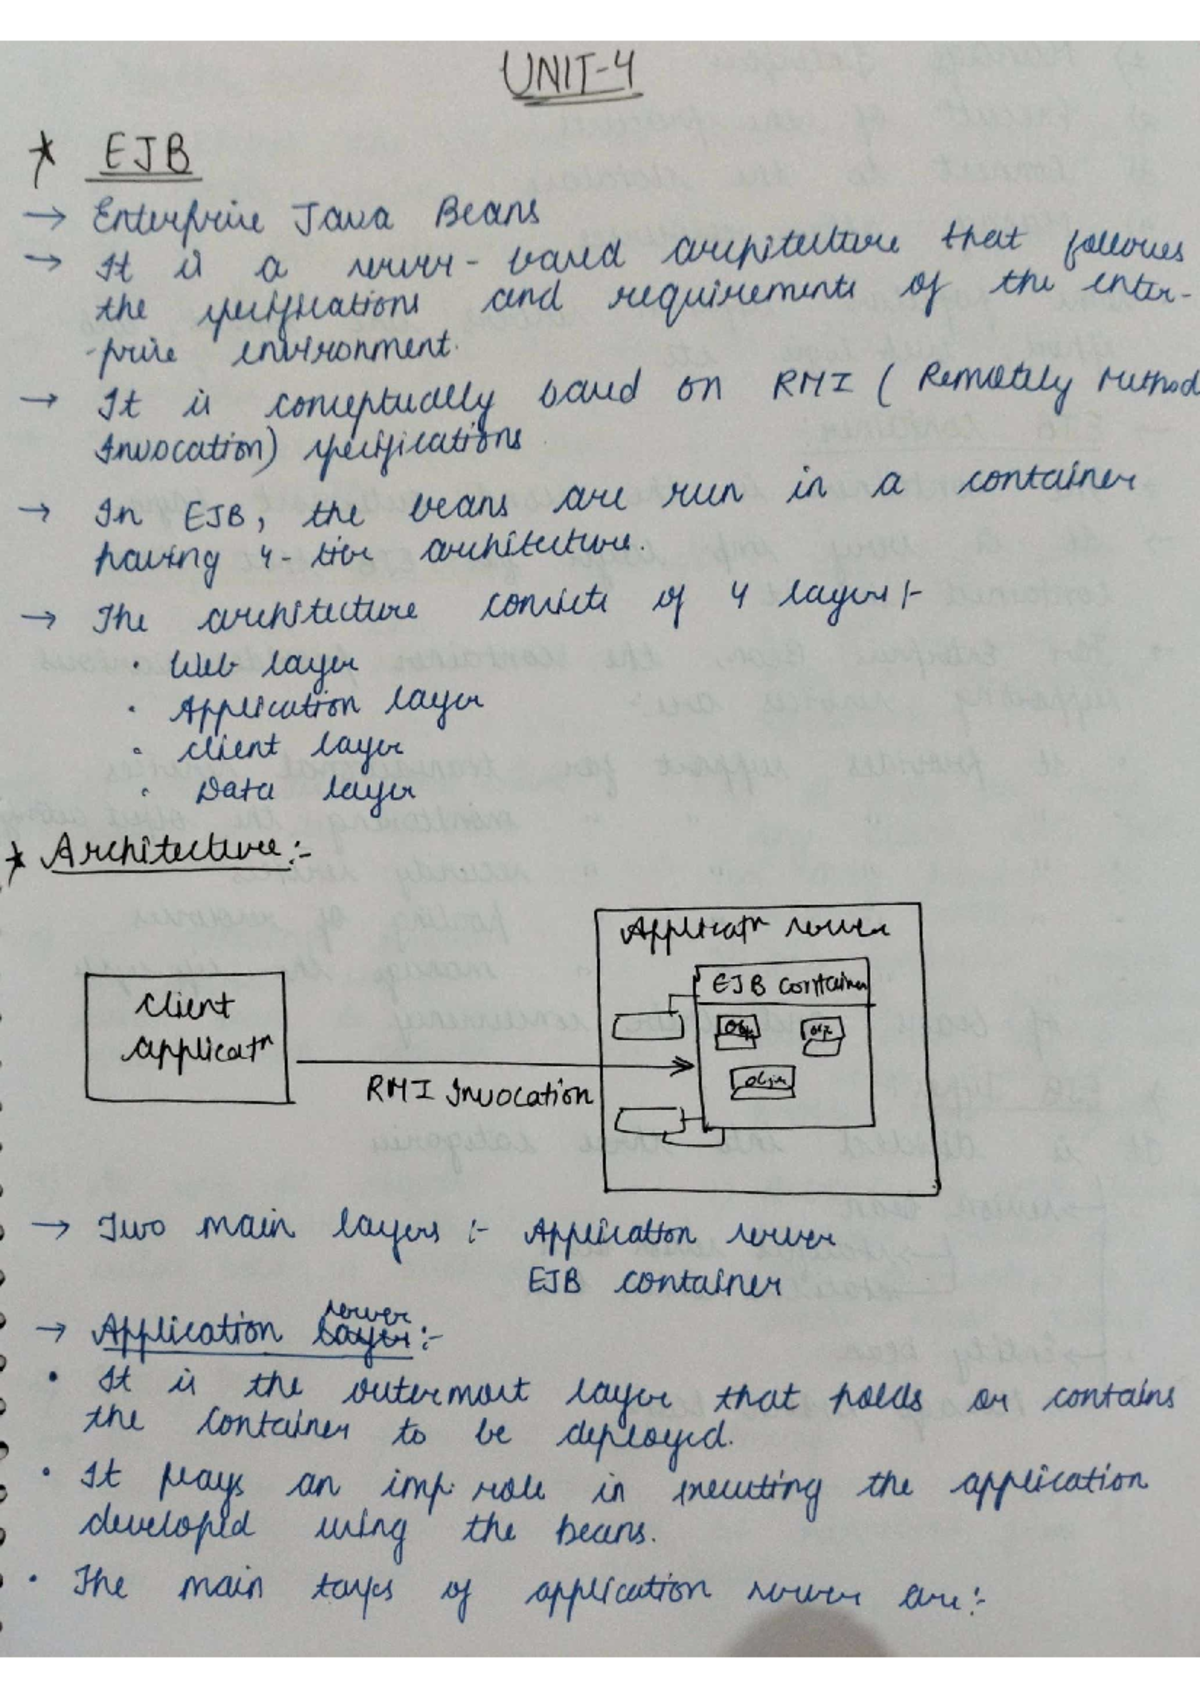 UNIT-4
* EJB
→ Enterprise Java Beans
→ It is a server-based architecture that follows
the specifications and requirements of the enter-
-prise environment.
→ It is conceptually based on RMI ( Remotely Method
Invocation) specifications
→ In EJB, the beans are run in a container
having 4-tier architecture.
→ The architecture consists of 4 layers :-
• Web layer
• Application layer
• client layer
• Data layer
* Architecture :-
Applicatn server
EJB container
client
applicatn
Obj
obj
Obj
RMI Invocation
→ Two main layers :- Application server
EJB container
server
→ Application layer :-
• It is the outermost layer that holds or contains
the container to be deployed.
• It plays an imp. role in executing the application
developed using the beans.
• The main tasks of application server are :-